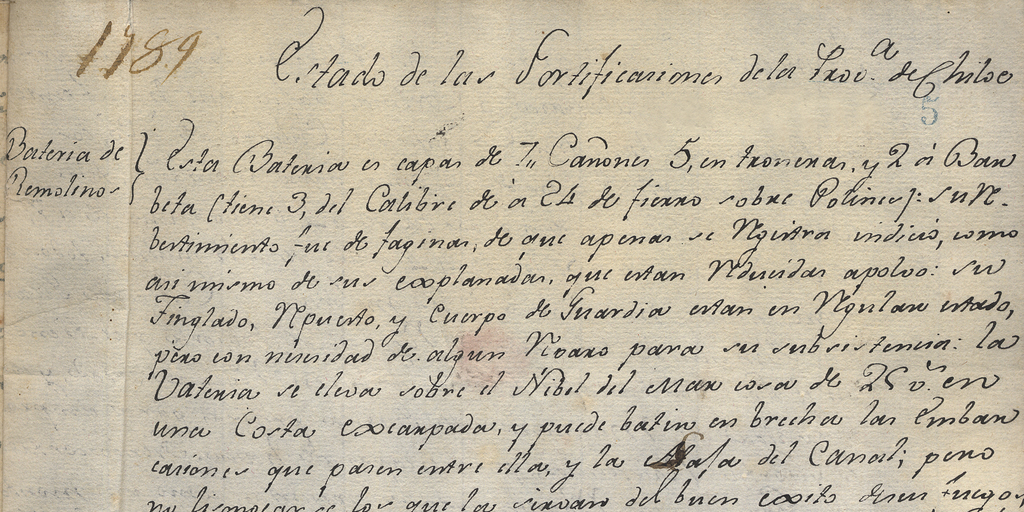 1789
Estado de las Fortificaciones de la Prov.ª de Chiloe
5
Bateria de
Remolinos
Esta Bateria es capas de 7,, Cañones 5, en troneras, y 2 á Bar
beta (tiene 3, del Calibre de á 24 de fierro sobre Polines): su Re-
bertimiento fue de faginas, de que apenas se Registra indicio, como
asi mismo de sus explanadas, que estan Reducidas apolvo: su
Tinglado, Repuesto, y Cuerpo de Guardia estan en Regular estado,
pero con necesidad de algun Reparo para su subsistencia: la
Vateria se eleva sobre el Nibel del Mar cosa de 25 v.s en
una Costa excarpada, y puede batir en brecha las Embar
caciones que pasen entre ella, y la del Canal; pero
no los que la sirvan del buen exito desus fuegos